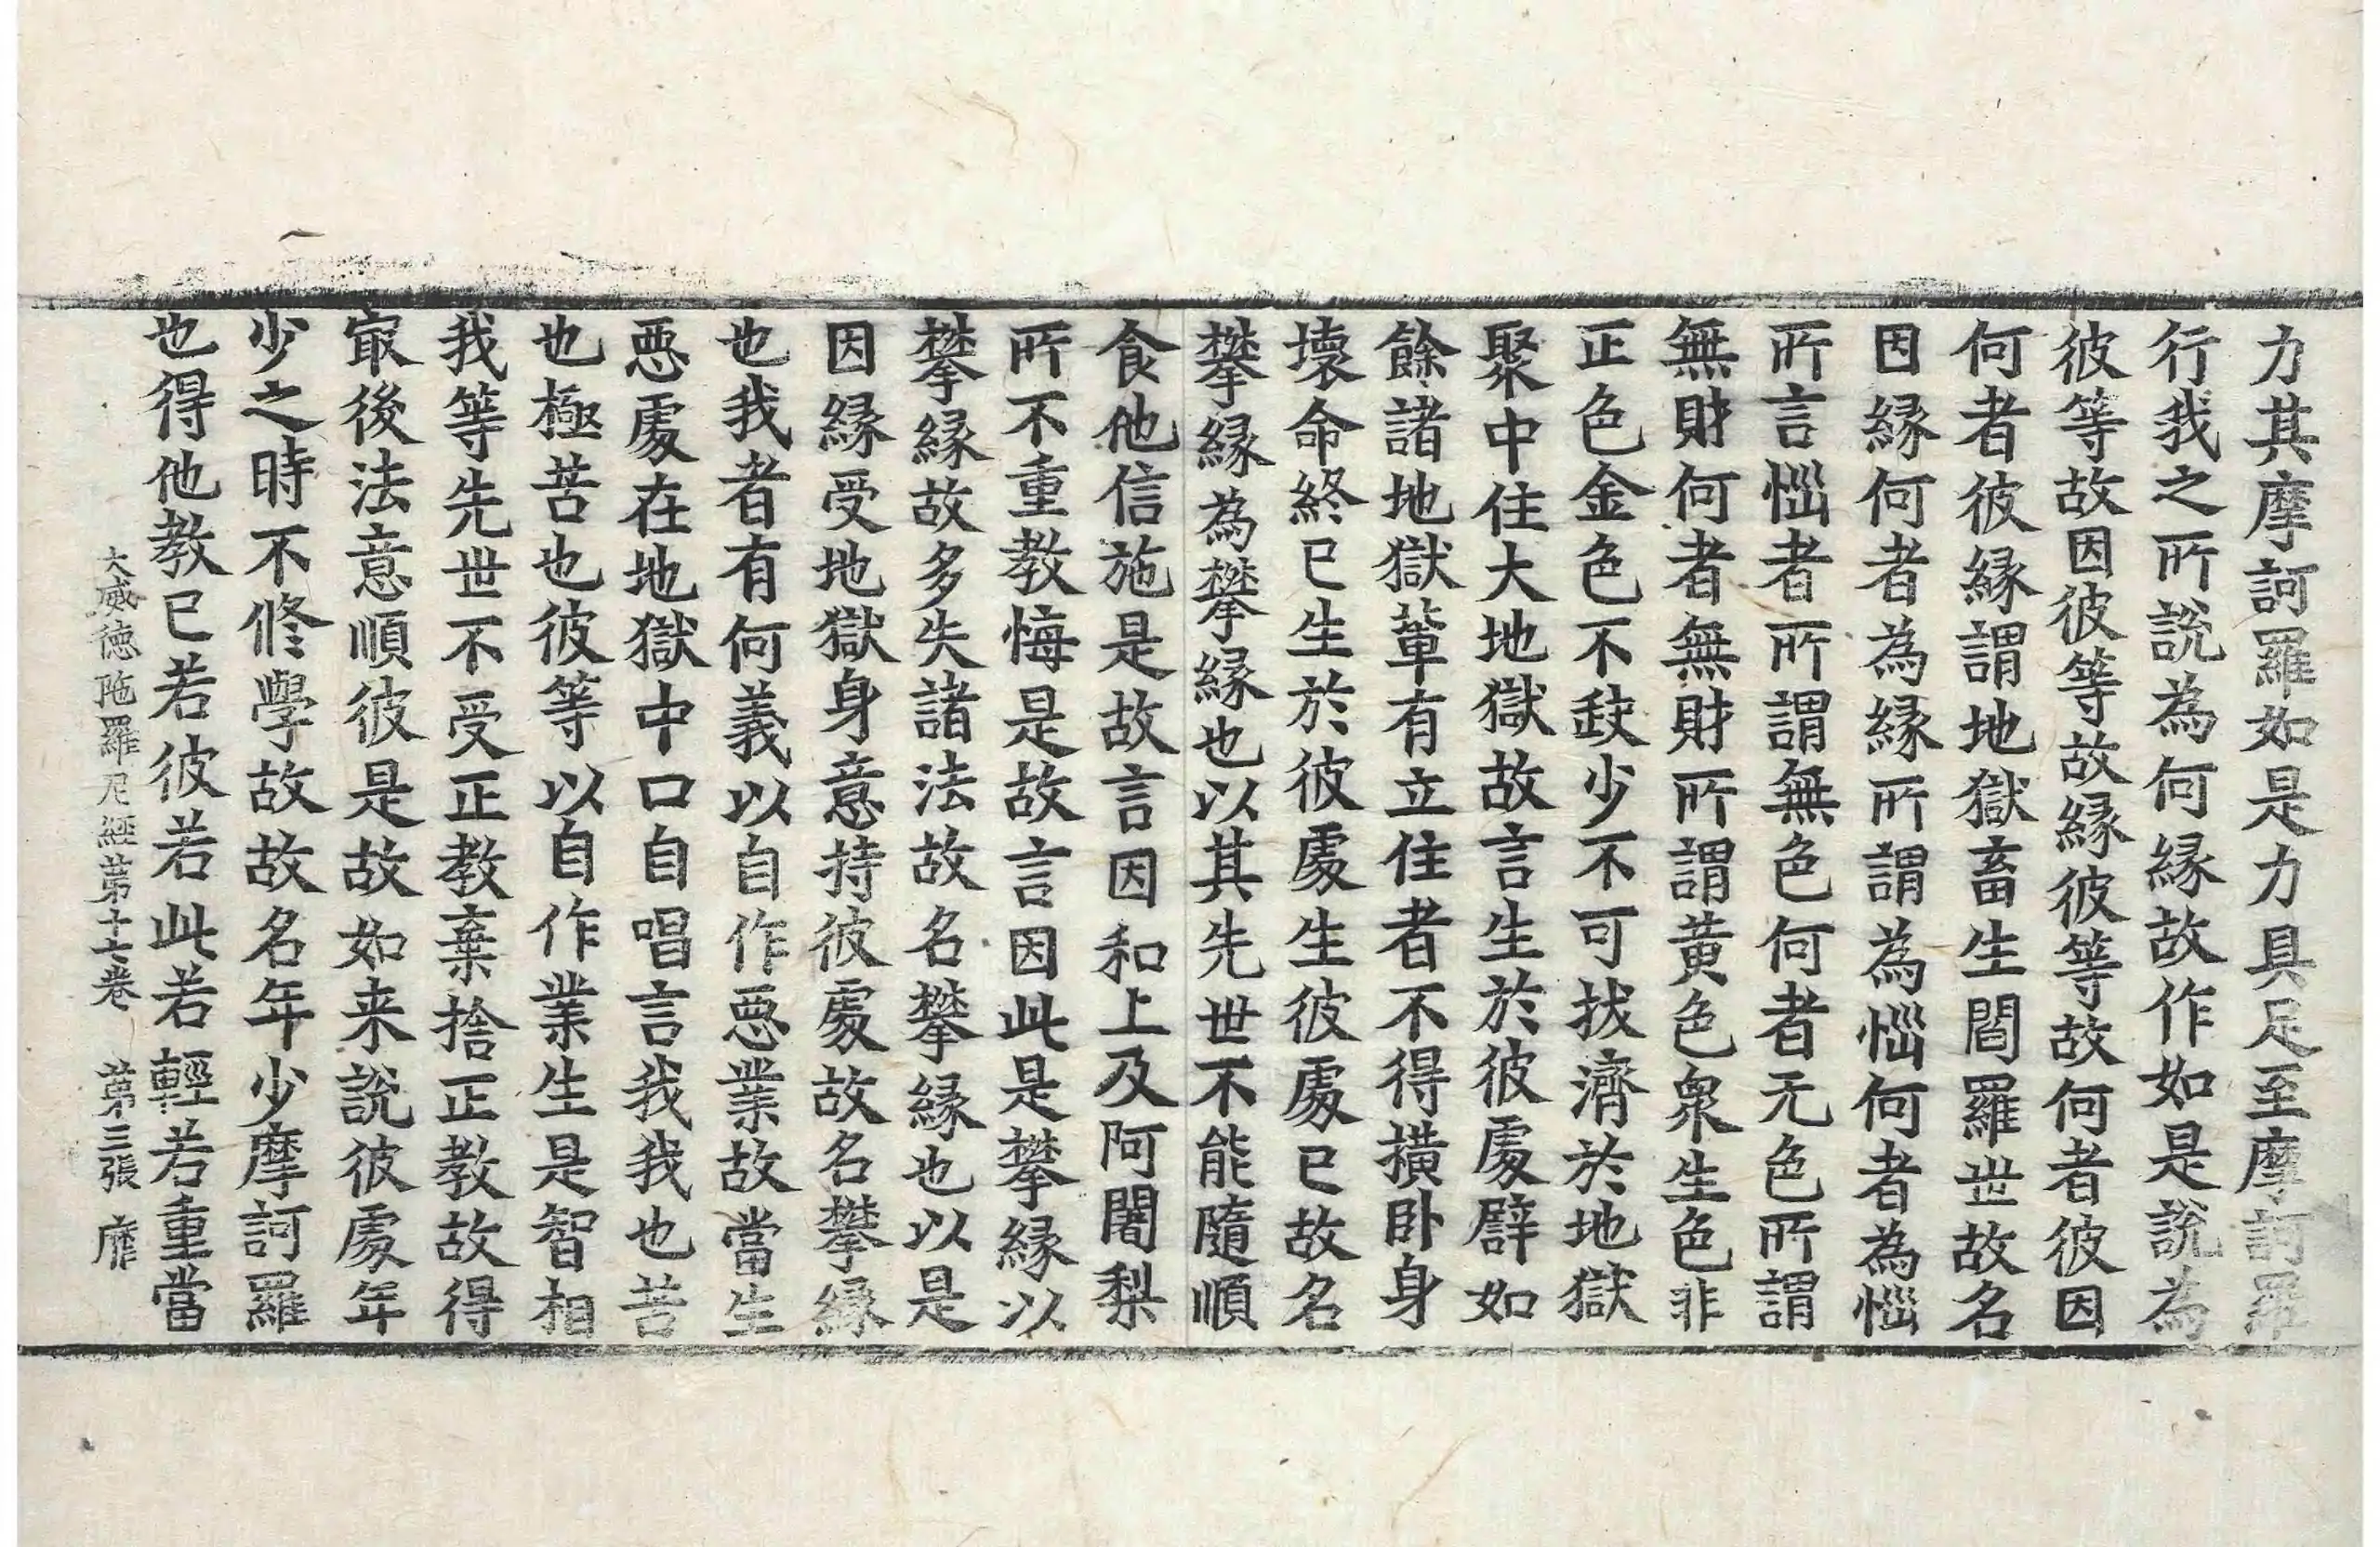 力其摩訶羅如是力具足至摩訶羅
行我之所說為何緣故作如是說為
彼等故因彼等故緣彼等故何者彼因
何者彼緣謂地獄畜生閻羅世故名
因緣何者為緣所謂為惱何者為惱
所言惱者所謂無色何者无色所謂
無財何者無財所謂黃色眾生色非
正色金色不𡙇少不可拔濟於地獄
聚中住大地獄故言生於彼處譬如
餘諸地獄軰有立住者不得撗卧身
壞命終已生於彼處生彼處已故名
攀緣為攀緣也以其先世不能隨順
食他信施是故言因和上及阿闍梨
所不重教悔是故言因此是攀緣以
攀緣故多失諸法故名攀緣也以是
因緣受地獄身意持彼處故名攀緣
也我者有何義以自作惡業故當生
惡處在地獄中口自唱言我我也苦
也極苦也彼等以自作業生是智相
我等先世不受正教棄捨正教故得
㝡後法意順彼是故如来說彼處年
少之時不修學故故名年少摩訶羅
也得他教已若彼若此若輕若重當
大威德陁羅尼經第十七卷　第三張　靡